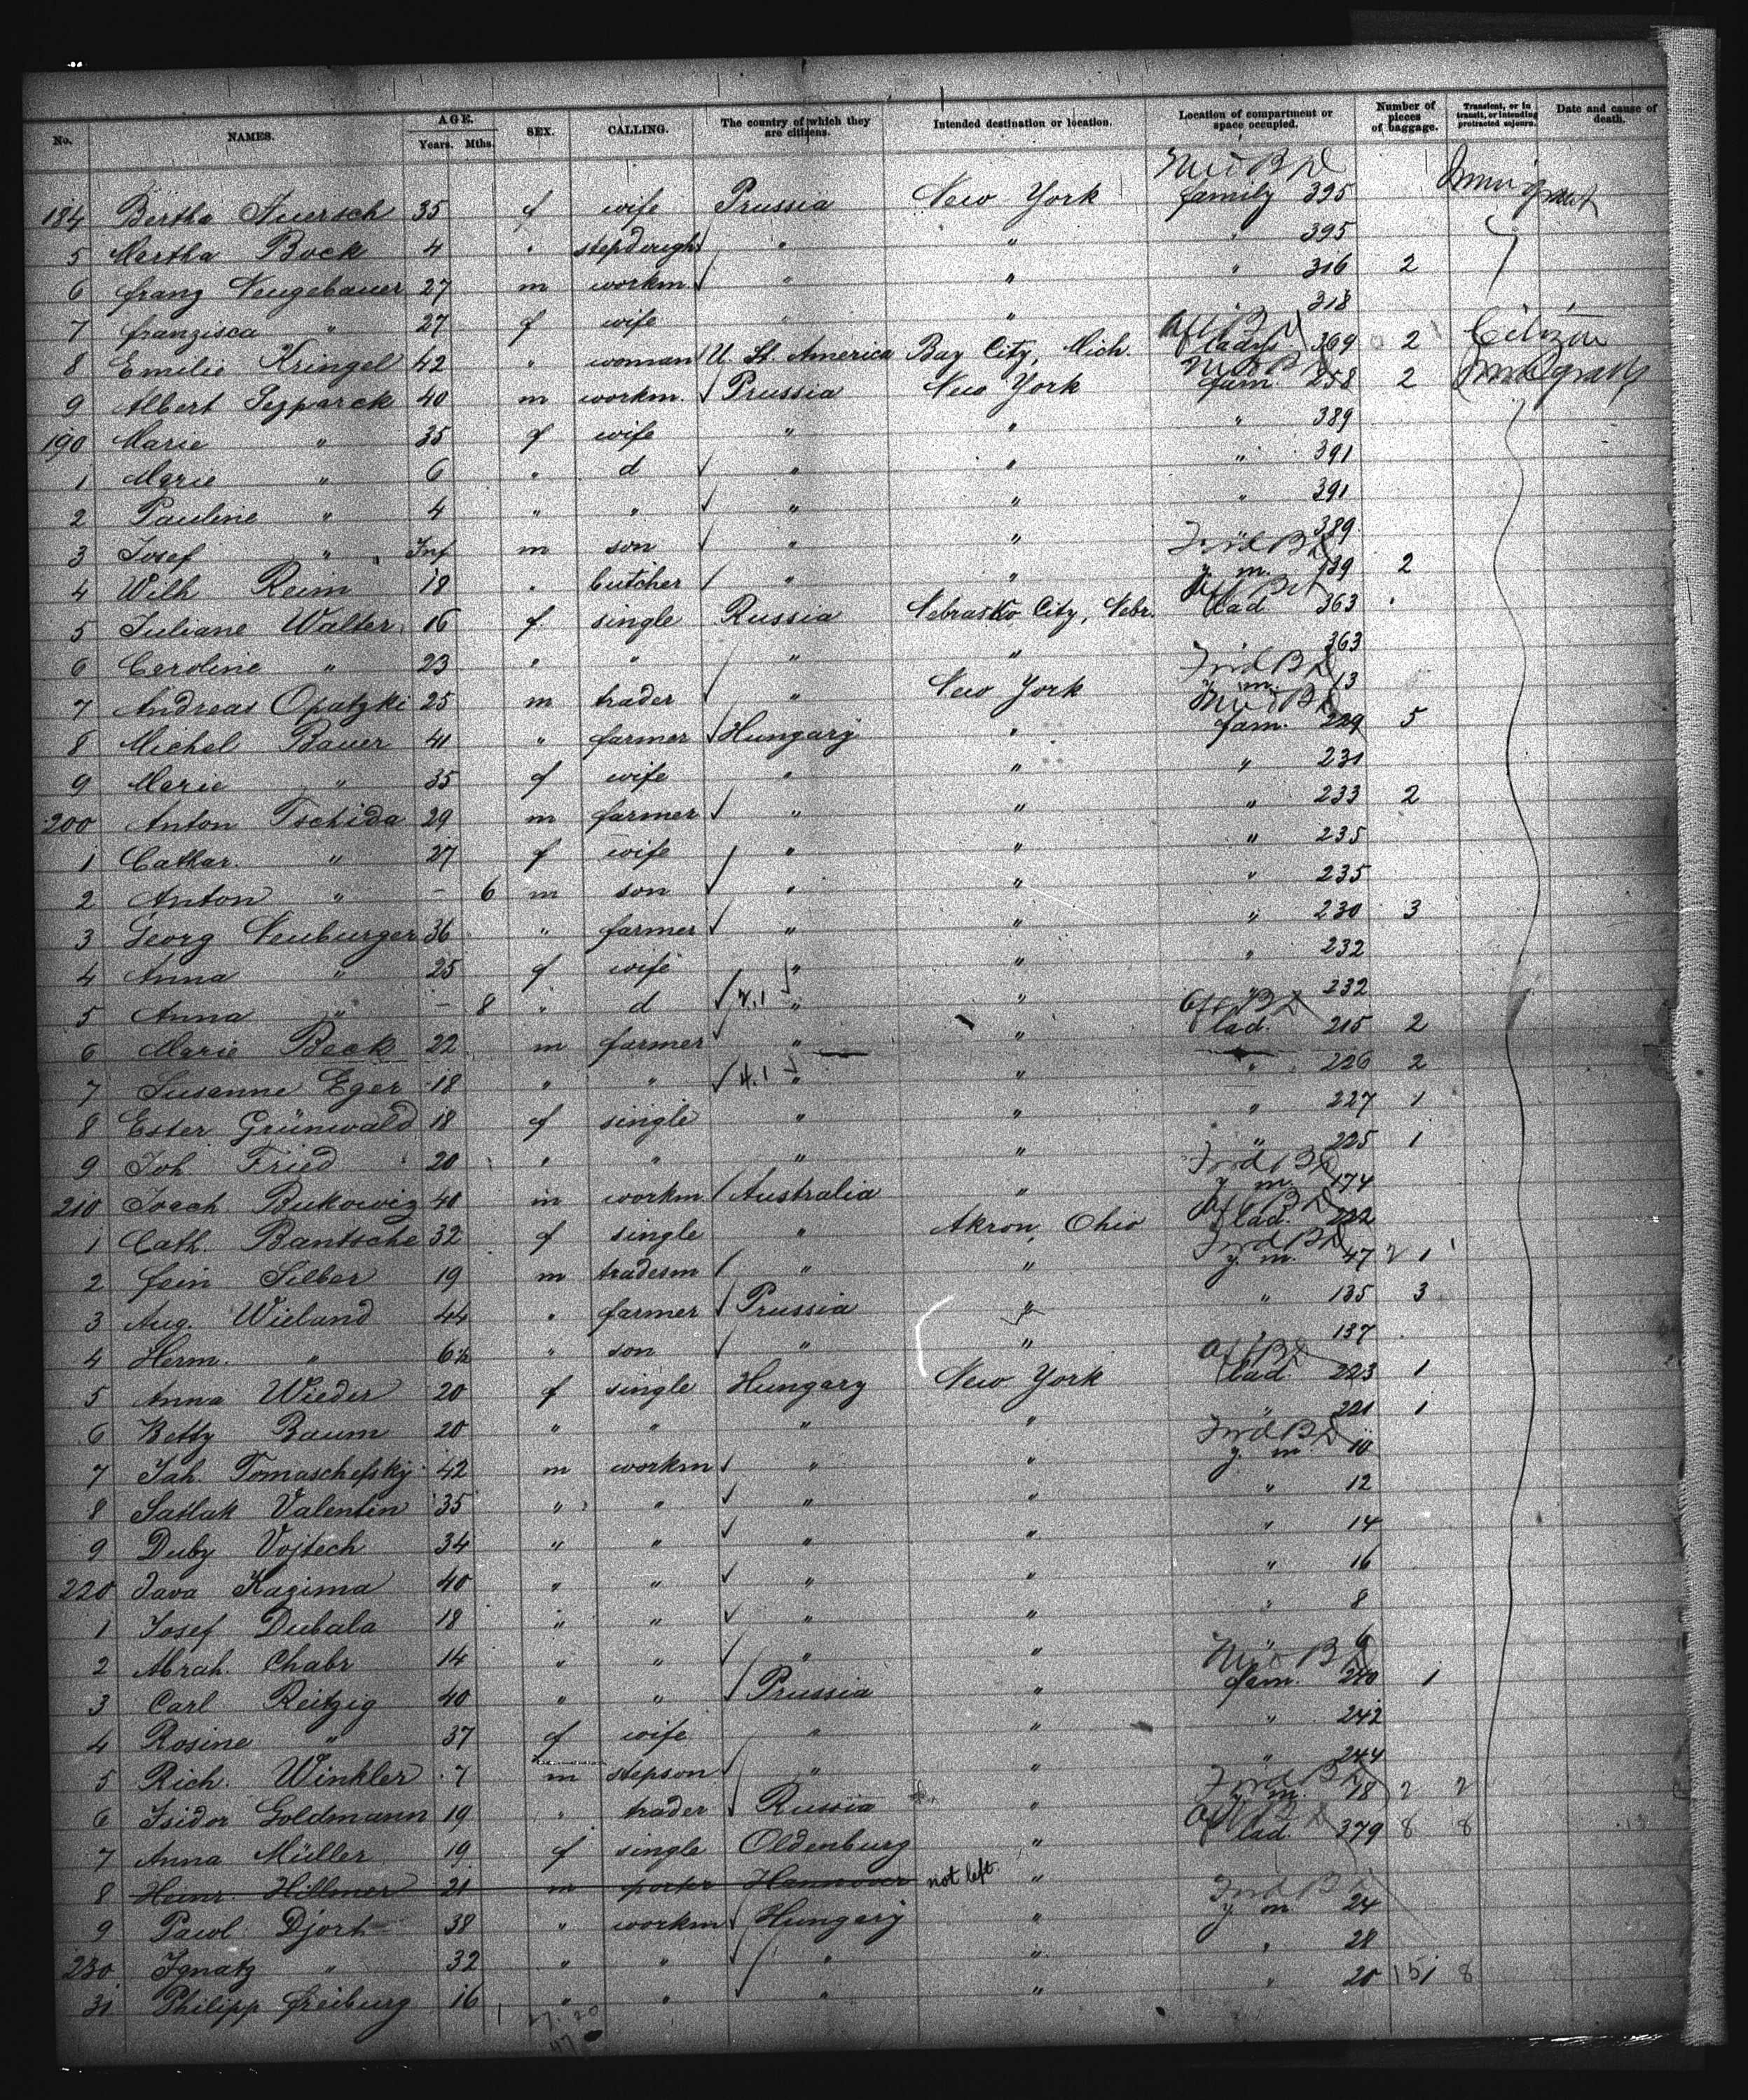 No. NAMES. AGE. Years. Mths. SEX. CALLING. The country of which they are citizens. Intended destination or location. Location of compartment or space occupied. Number of pieces of baggage. Transient, or in transit, or intending protracted sojourn. Date and cause of death.
184 Bertha Auersch 35 f wife Prussia New York family 395 Immigrant
5 Martha Bock 4 " stepdaught " " " 395
6 Franz Neugebauer 27 m workm. " " " 316 2
7 Franzisca " 27 f wife " " " 318
8 Emilie Kringel 42 " woman U. St. America Bay City, Mich. ladys 369 2 Citizen
9 Albert 40 m workm. Prussia New York fam. 258 2 Immigrants
190 Marie " 35 f wife " " " 389
1 Marie " 6 " d " " " 391
2 Pauline " 4 " " " " " 391
3 Josef " Inf m son " " " 389
4 Wilh Reim 18 " butcher " " y. m. 139 2
5 Juliane Walter 16 f single Russia Nebraska City, Nebr. lad 363
6 Caroline " 23 " " " " 363
7 Andreas Opatzki 25 m trader " New York y. m. 13
8 Michel Bauer 41 " farmer Hungary " fam. 229 5
9 Marie " 35 f wife " " " 231
200 Anton Tschida 29 m farmer " " " 233 2
1 Cathar. " 27 f wife " " " 235
2 Anton " – 6 m son " " " 235
3 Georg Neuburger 36 " farmer " " " 230 3
4 Anna " 25 f wife " " " 232
5 Anna " – 8 " d " " " 232
6 Marie Beck 22 m farmer " " lad. 215 2
7 Susanne Eger 18 " " " " " 226 2
8 Ester Grünwald 18 f single " " " 227 1
9 Joh. Fried 20 " " " " " 225 1
210 Joach. Bukowiz 40 m workm. Australia " y. m. 174
1 Cath. Bantsche 32 f single " Akron, Ohio lad. 222
2 Fein Silber 19 m tradesm " " y. m. 47 2 1
3 Aug. Wieland 44 " farmer Prussia " " 135 3
4 Herm. " 6½ " son " " " 137
5 Anna Wieder 20 f single Hungary New York lad. 223 1
6 Betty Baum 20 " " " " " 221 1
7 Joh. Tomaschefsky 42 m workm " " y. m. 10
8 Satlak Valentin 35 " " " " " 12
9 Duby Vojtech 34 " " " " " 14
220 Java Kazima 40 " " " " " 16
1 Josef Dubala 18 " " " " " 8
2 Abrah. Chabr 14 " " " " " 6
3 Carl Reitzig 40 " " Prussia " fam. 240 1
4 Rosine " 37 f wife " " " 242
5 Rich. Winkler 7 m stepson " " " 244
6 Isidor Goldmann 19 " trader Russia " y. m. 78 2 2
7 Anna Müller 19 f single Oldenburg " lad. 379 8 8
8 Heinr. Hillmer 21 m porter Hannover not left "
9 Pawol Djort 38 " workm Hungary " y. m. 24
230 Ignatz " 32 " " " " " 28
31 Philipp Freiburg 16 " " " " " 20 151 8
27. 20
47